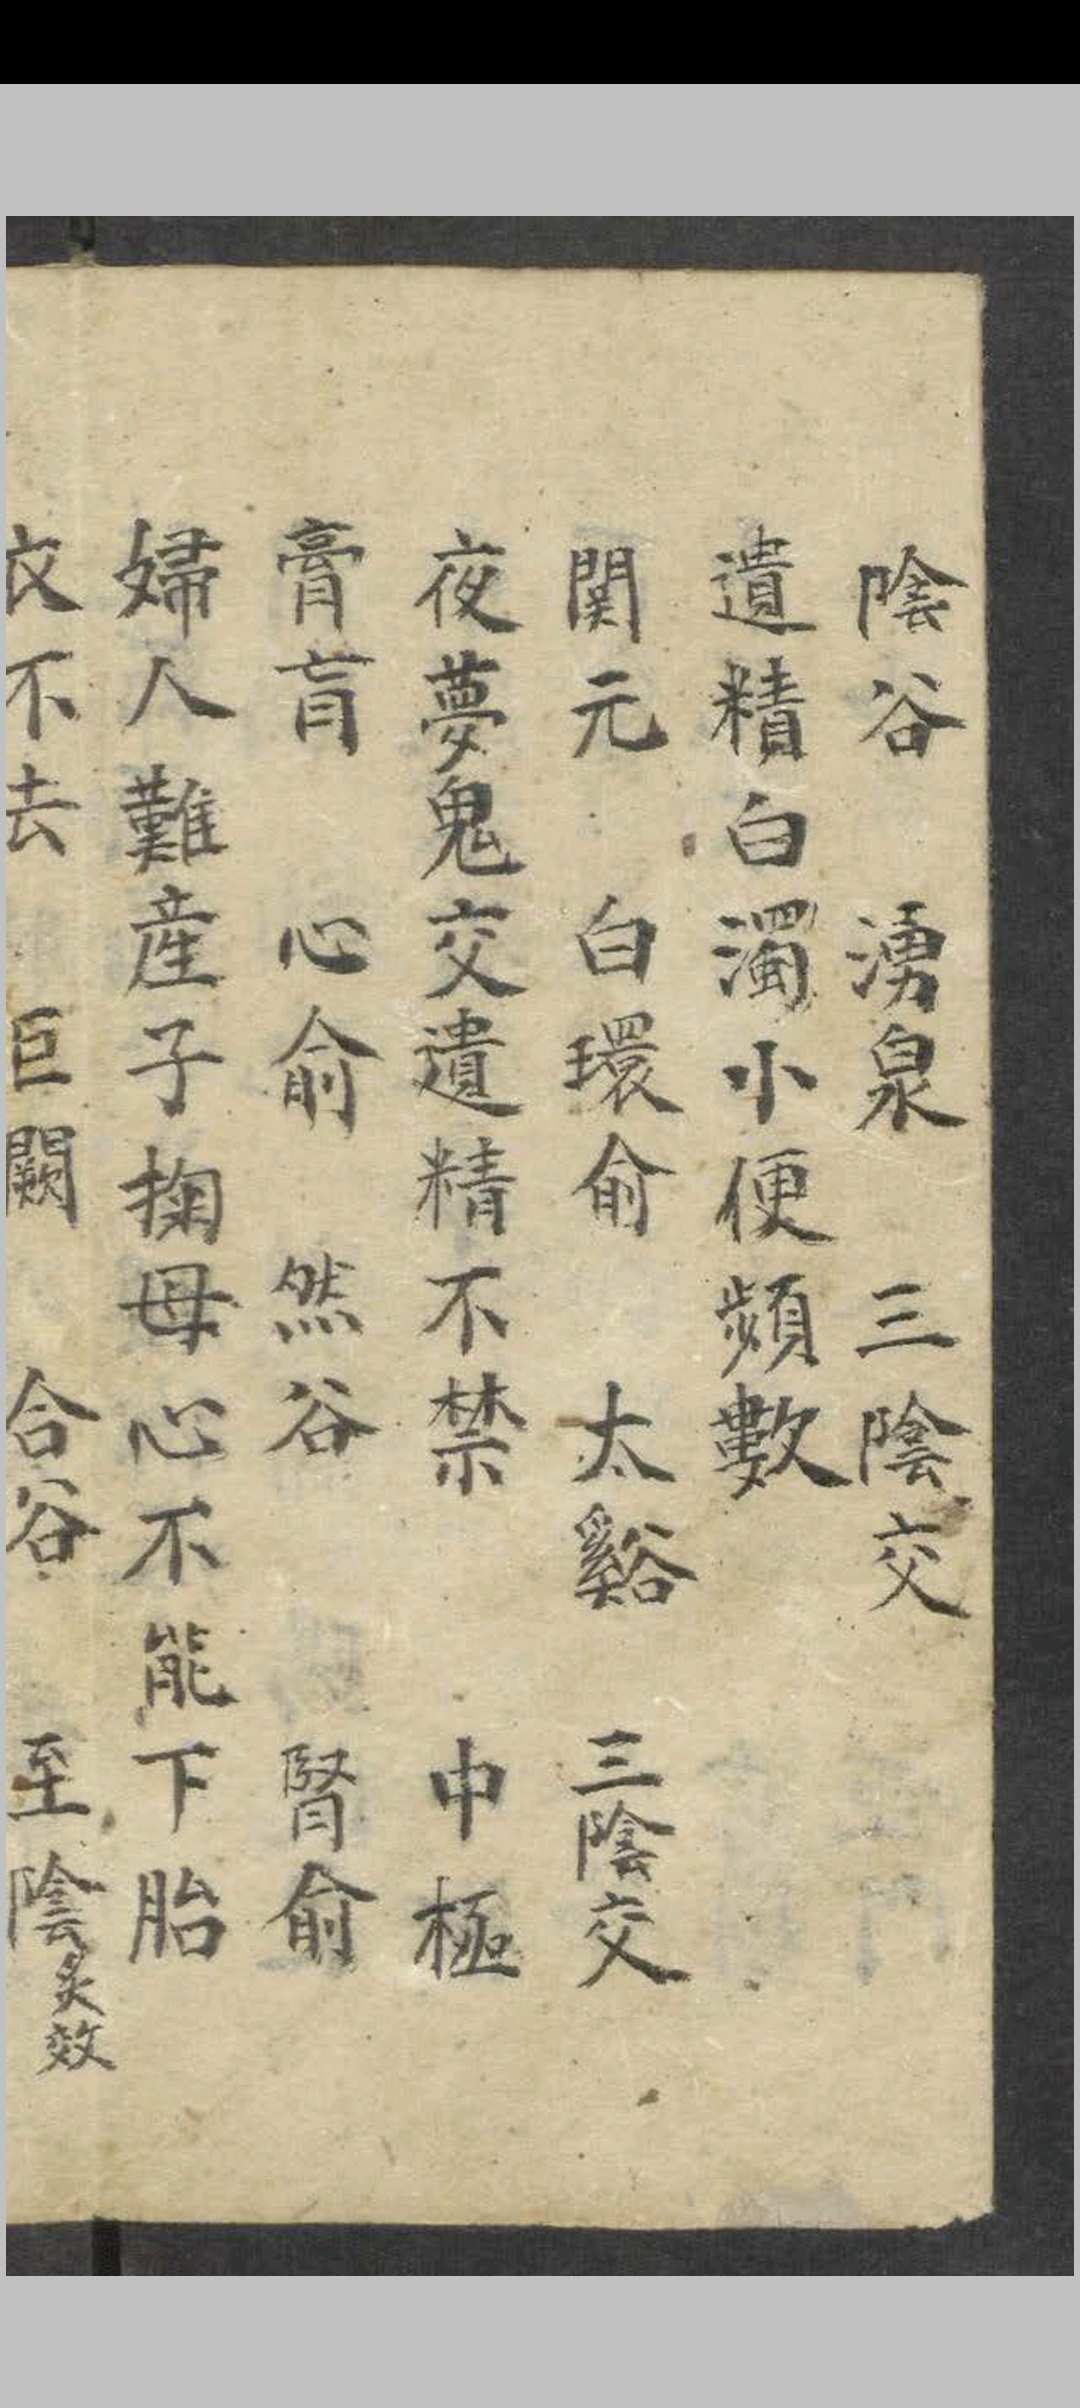 陰谷　湧泉　三陰交
遺精白濁小便頻數
関元　白環俞　太谿　三陰交
夜夢鬼交遺精不禁　中極
膏肓　心俞　然谷　腎俞
婦人難産子掬母心不能下胎
衣不去　巨闕　合谷　至陰灸效